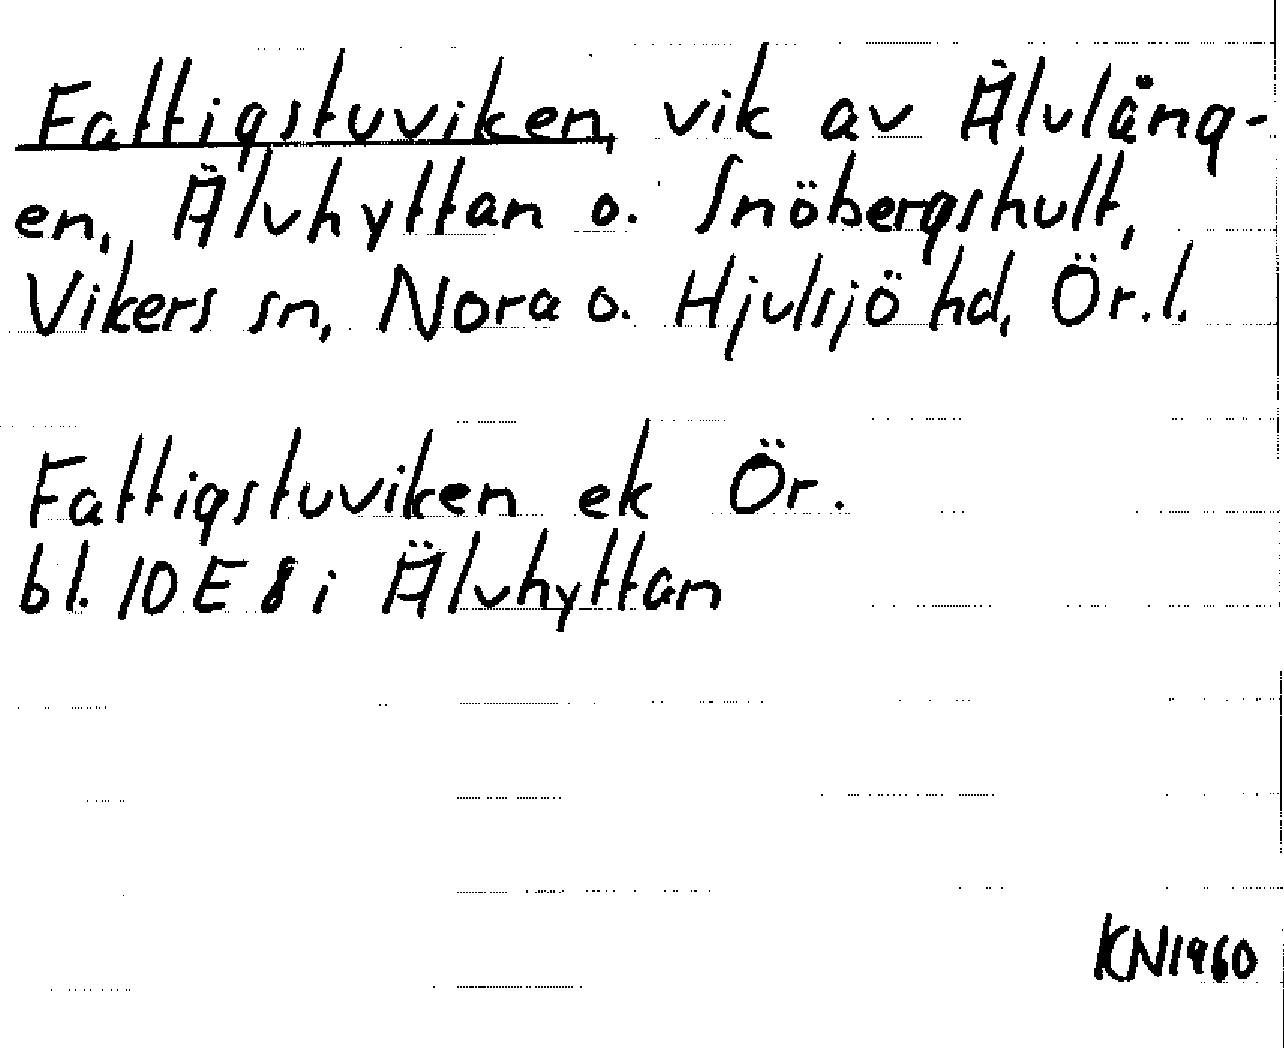 Fattigstuviken, vik av Älvlång-
en, Älvhyttan o. Snöbergshult,
Vikers sn, Nora o. Hjulsjö hd, Ör.l.
Fattigstuviken ek Ör.
bl. 10E 8i Älvhyttan
KN1960